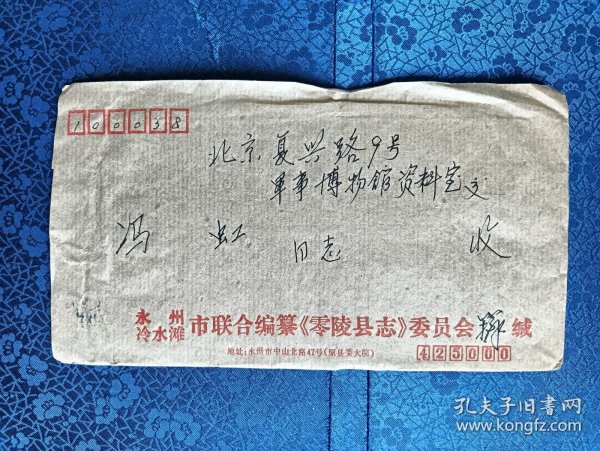 100038
北京复兴路9号
军事博物馆资料室交
冯虹同志 收
永州
冷水滩
市联合编纂《零陵县志》委员会 缄
地址:永州市中山北路47号(原县委大院)
425000
孔夫子旧书网
www.kongfz.com